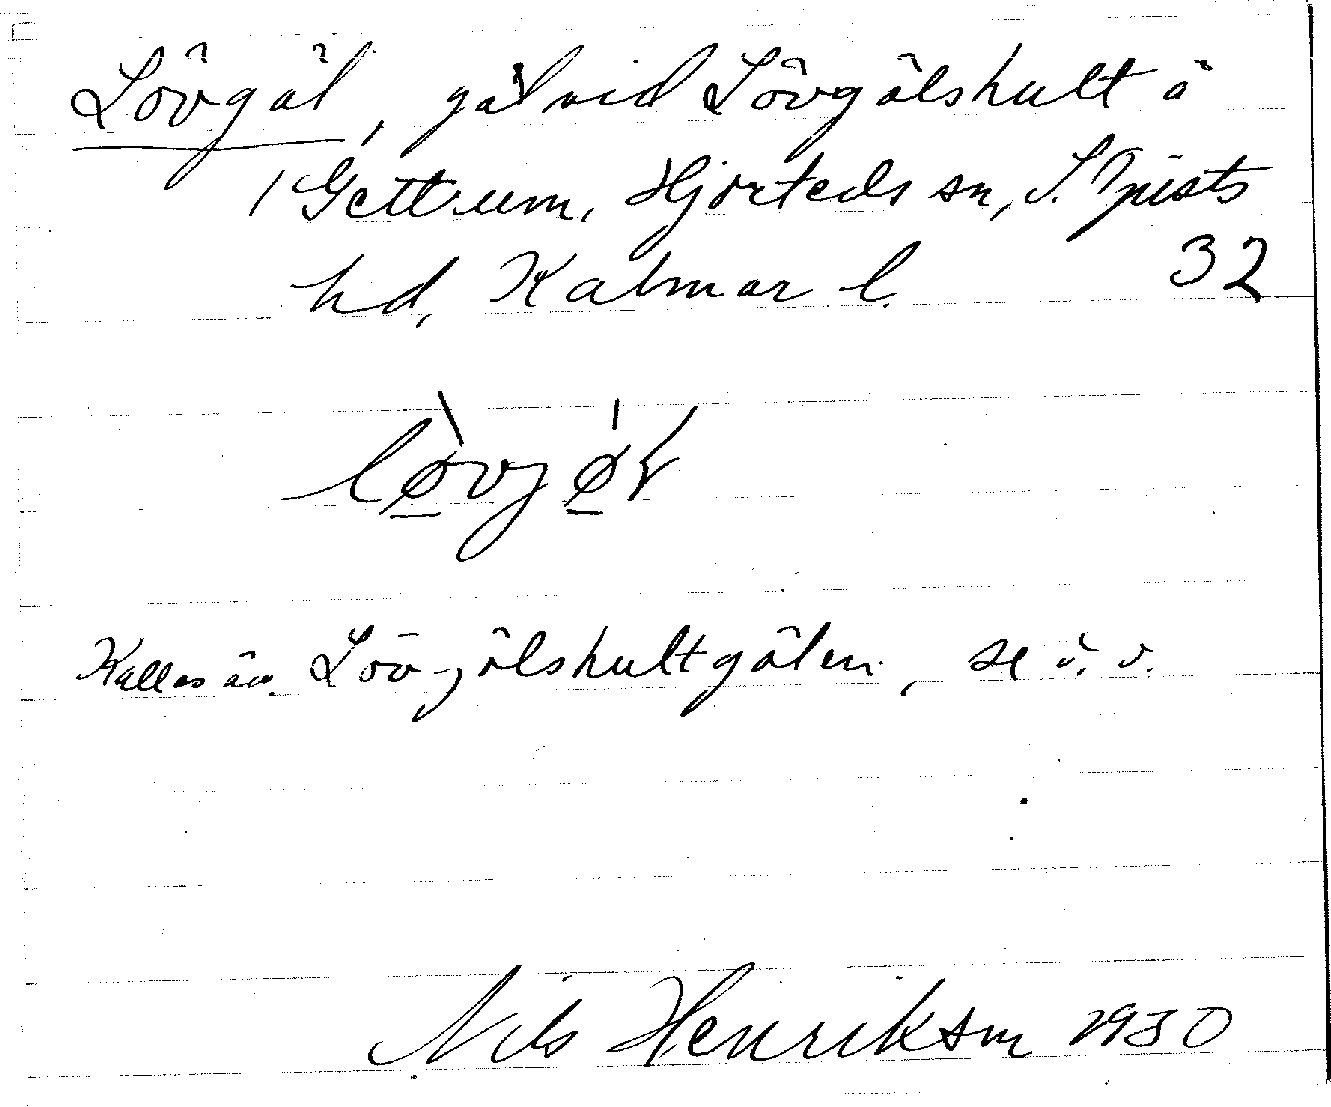 Lövgöl, göl vid Lövgölshult å
1 Gettrum, Hjorteds sn, S. Tjusts
hd, Kalmar l. 32
Kallas äv. Lövgölshultgölen, se d. o.
Nils Henrikson 1930